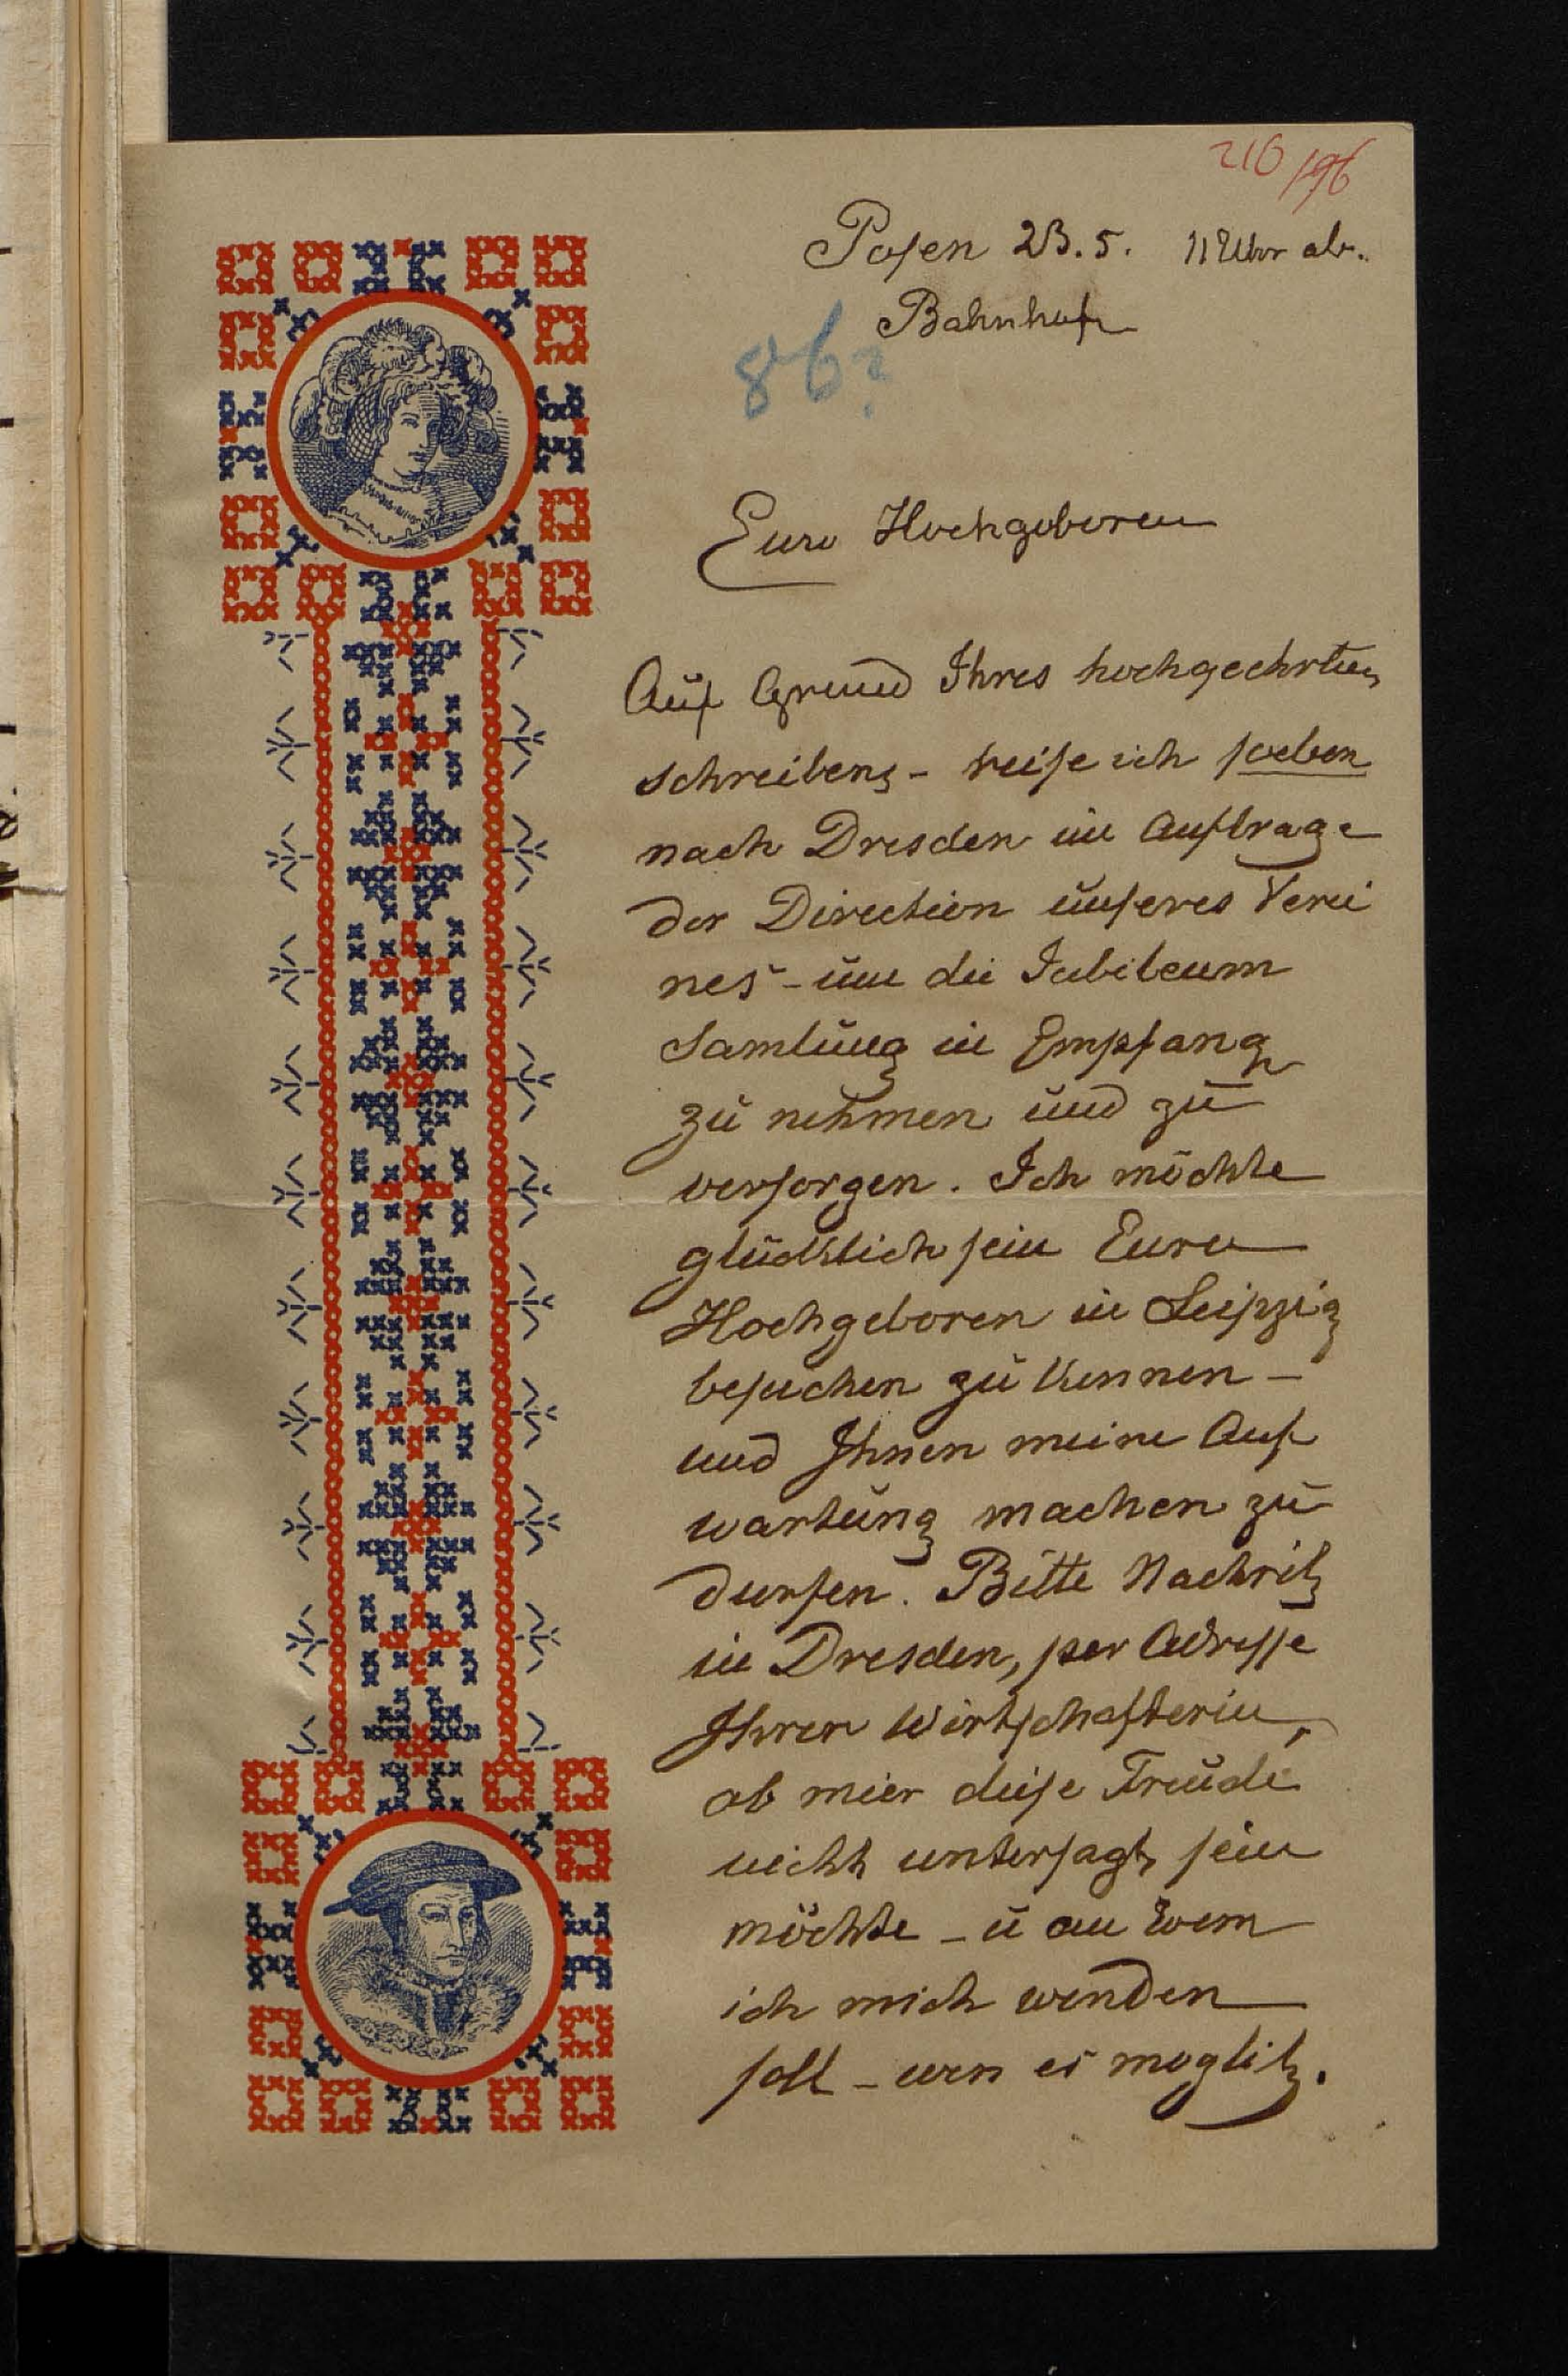 210 196
Posen 23.5. 11 Uhr ab.
Bahnhof
86?
Eure Hochgeboren
Auf Grund Ihres hochgeehrten
schreibens - reise ich soeben
nach Dresden im Auftrage
der Direction unseres Verei
nes - um die Jubileum
Samlung in Empfang
zu nehmen und zu
versorgen. Ich möchte
glücklich sein Eure
Hochgeboren in Leipzig
besuchen zu kennen -
und Ihnen meine Auf
wartung machen zu
durfen. Bitte Nachrich
in Dresden, per Adresse
Ihrer Wirtschafterin,
ob mier diese Freude
nicht untersagt sein
möchte - u an wem
ich mich wenden
soll - wen es moglich.